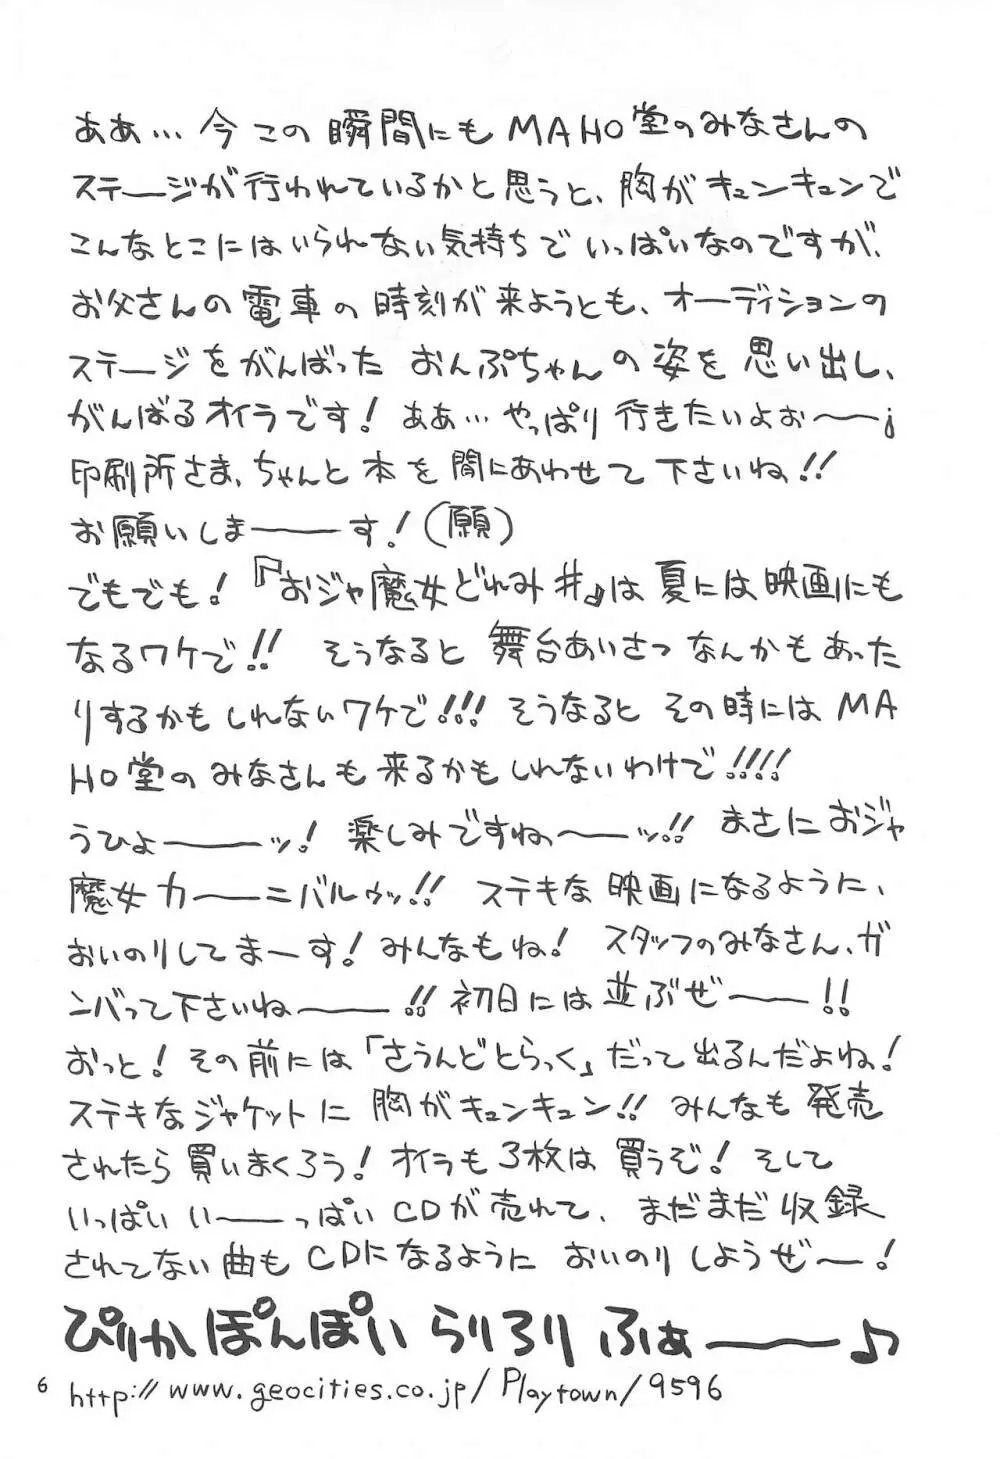 ああ…今この瞬間にもMAHO堂のみなさんの
ステージが行われているかと思うと、胸がキュンキュンで
こんなとこにはいられない気持ちでいっぱいなのですが、
お父さんの電車の時刻が来ようとも、オーディションの
ステージをがんばったおんぷちゃんの姿を思い出し、
がんばるオイラです!ああ…やっぱり行きたいよぉ〜〜¡
印刷所さま、ちゃんと本を間にあわせて下さいね!!
お願いしまーーーす!(願)
でもでも!『おジャ魔女どれみ#』は夏には映画にも
なるワケで!!そうなると舞台あいさつなんかもあった
りするかもしれないワケで!!!そうなるとその時にはMA
HO堂のみなさんも来るかもしれないわけで!!!!
うひょーーーッ!楽しみですね〜〜ーッ!!まさにおジャ
魔女カーーニバルゥッ!!ステキな映画になるように、
おいのりしてまーす!みんなもね!スタッフのみなさん、ガ
ンバって下さいね〜〜ーー!!初日には並ぶぜ〜ー!!
おっと!その前には「さうんどとらっく」だって出るんだよね!
ステキなジャケットに胸がキュンキュン!!みんなも発売
されたら買いまくろう!オイラも3枚は買うぞ!そして
いっぱいいーーっぱいCDが売れて、まだまだ収録
されてない曲もCDになるようにおいのりしようぜ〜!
ぴりかぽんぽいらりろりふぁーーー♪
6 http://www.geocities.co.jp/Playtown/9596